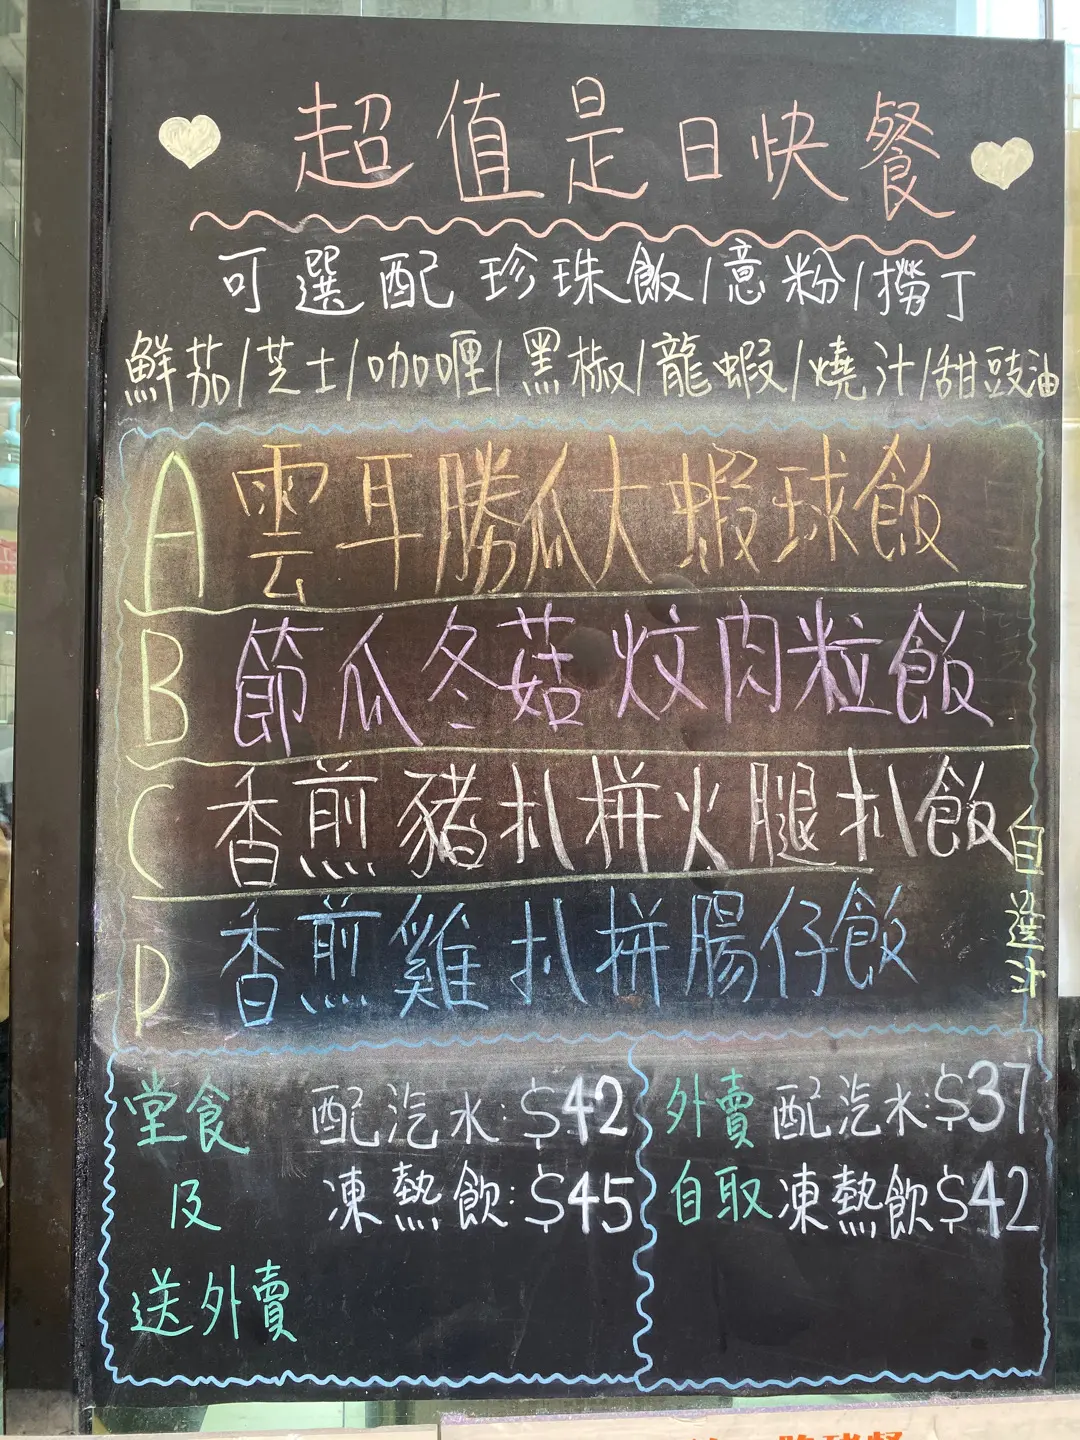 超值是日快餐
可選配 珍珠飯/意粉/撈丁
鮮茄/芝士/咖喱/黑椒/龍蝦/燒汁/甜豉油
A 雲耳勝瓜大蝦球飯
B 節瓜冬菇炆肉粒飯
C 香煎豬扒拼火腿扒飯
D 香煎雞扒拼腸仔飯
自選汁
堂食 配汽水:$42
及 凍熱飲:$45
送外賣
外賣 配汽水:$37
自取 凍熱飲$42